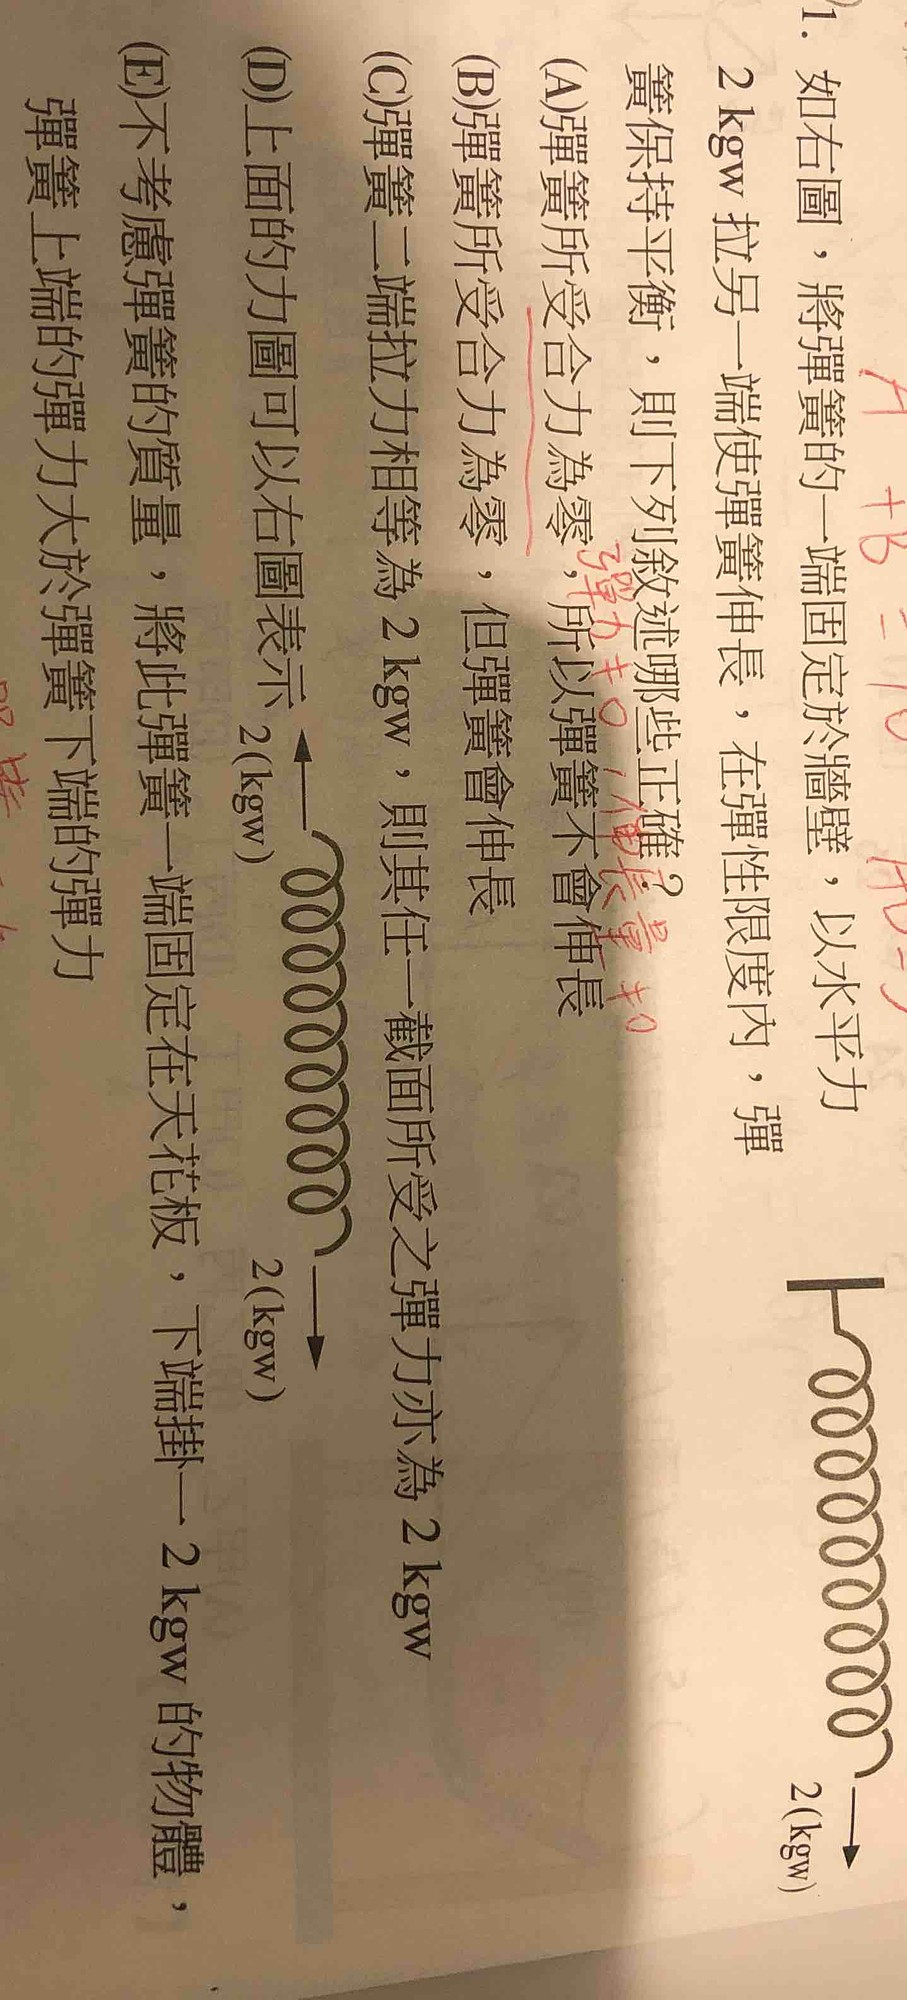 1. 如右圖，將彈簧的一端固定於牆壁，以水平力
2 kgw 拉另一端使彈簧伸長，在彈性限度內，彈
簧保持平衡，則下列敘述哪些正確？
2(kgw)
彈力≠0，伸長量≠0
(A)彈簧所受合力為零，所以彈簧不會伸長
(B)彈簧所受合力為零，但彈簧會伸長
(C)彈簧二端拉力相等為 2 kgw，則其任一截面所受之彈力亦為 2 kgw
(D)上面的力圖可以右圖表示
2(kgw)
2(kgw)
(E)不考慮彈簧的質量，將此彈簧一端固定在天花板，下端掛一 2 kgw 的物體，
彈簧上端的彈力大於彈簧下端的彈力